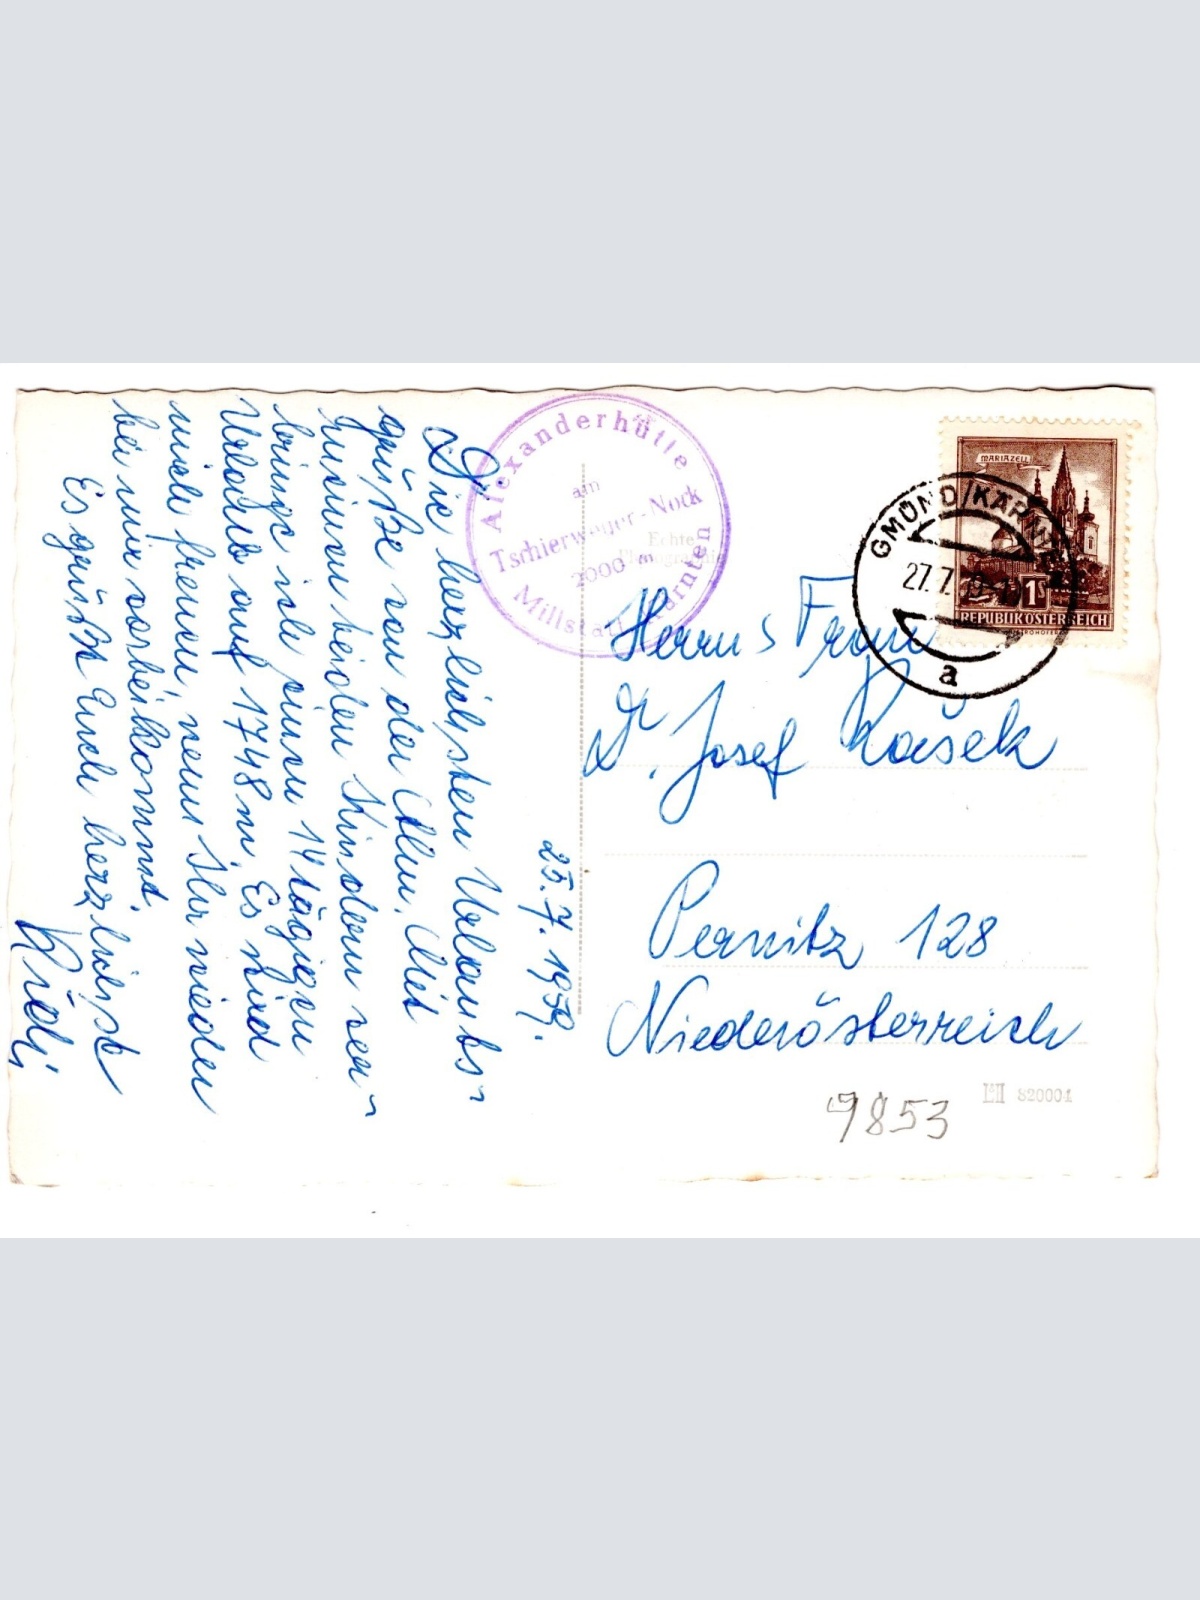 25. 7. 1959.
Die herzlichsten Urlaubs-
grüße von der Alm. Mit
meinen beiden Kindern ver-
bringe ich einen 14tägigen
Urlaub auf 1748 m. Es wird
mich freuen, wenn Ihr wieder
bei mir vorbeikommt.
Es grüßt Euch herzlichst
Rudi
Alexanderhütte
am
Tschierweger-Nock
2000 m
Millstatt Kärnten
Echte
Photographie
MARIAZELL
1S
REPUBLIK ÖSTERREICH
GMÜND/KÄRNTEN
27.7.
a
Herrn, Frau
Dr. Josef Rašek
Pernitz 128
Niederösterreich
9853
820004